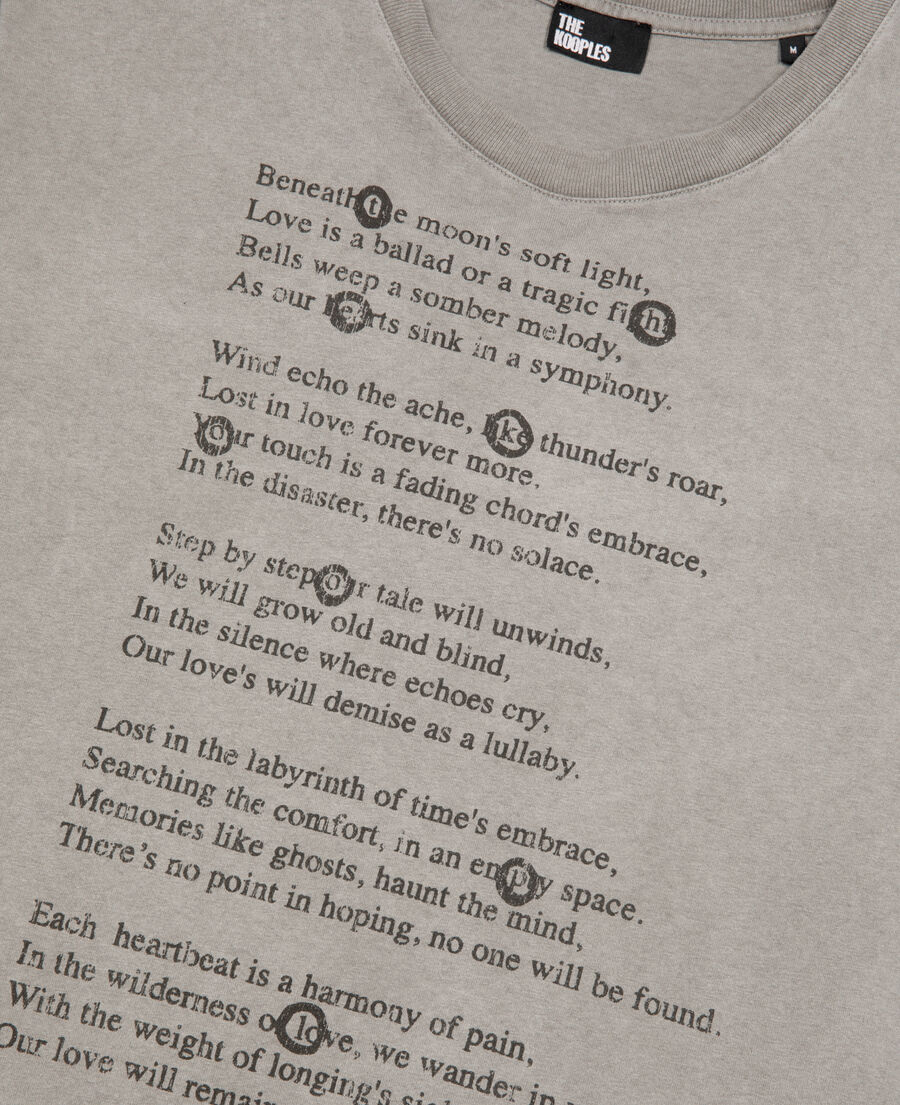 THE
KOOPLES
M
Beneath the moon's soft light,
Love is a ballad or a tragic fight
Bells weep a somber melody,
As our hearts sink in a symphony.
Wind echo the ache, like thunder's roar,
Lost in love forever more.
Your touch is a fading chord's embrace,
In the disaster, there's no solace.
Step by step our tale will unwinds,
We will grow old and blind,
In the silence where echoes cry,
Our love's will demise as a lullaby.
Lost in the labyrinth of time's embrace,
Searching the comfort, in an empy space.
Memories like ghosts, haunt the mind,
There's no point in hoping, no one will be found.
Each heartbeat is a harmony of pain,
In the wilderness of love, we wander in
With the weight of longing's
Our love will remain